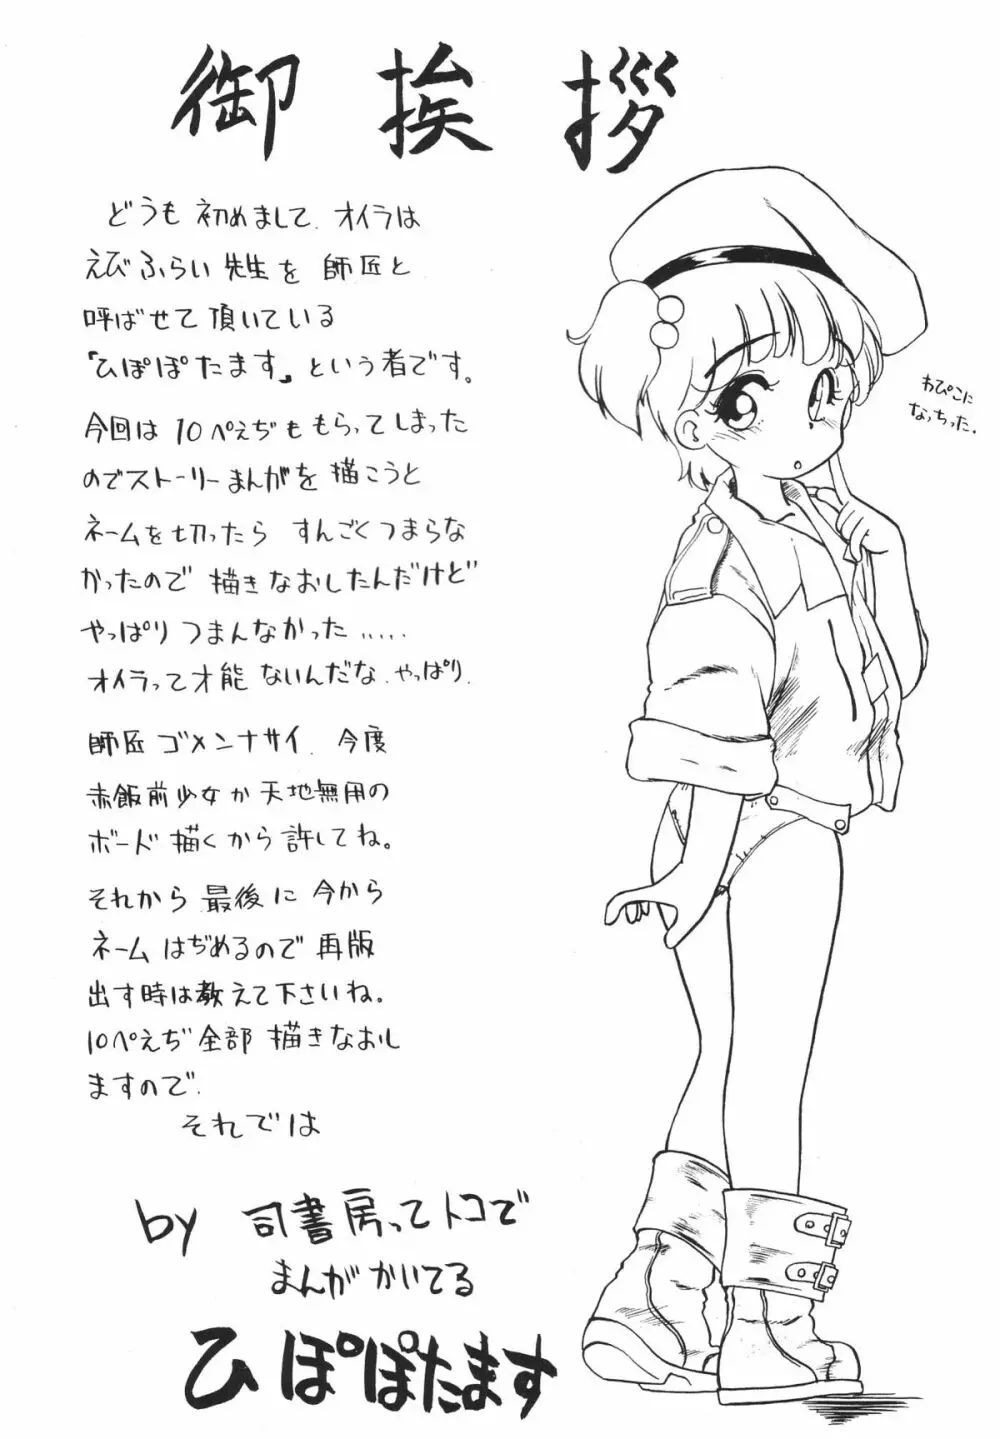 御挨拶
どうも 初めまして. オイラは
えびふらい 先生を 師匠と
呼ばせて 頂いている
「ひぽぽたます」という者です。
今回は 10ぺえぢも もらってしまった
のでストーリーまんがを 描こうと
ネームを切ったら すんごくつまらな
かったので 描きなおしたんだけど
やっぱり つまんなかった……
オイラって才能 ないんだな. やっぱり.
師匠 ゴメンナサイ. 今度
赤飯前少女か 天地無用の
ボード 描くから 許してね。
それから 最後に 今から
ネーム はぢめるので 再版
出す時は教えて下さいね。
10ぺえぢ 全部 描きなおし
ますので.
それでは
by 司書房ってトコで
まんが かいてる
ひぽぽたます
わぴこに
なっちった.